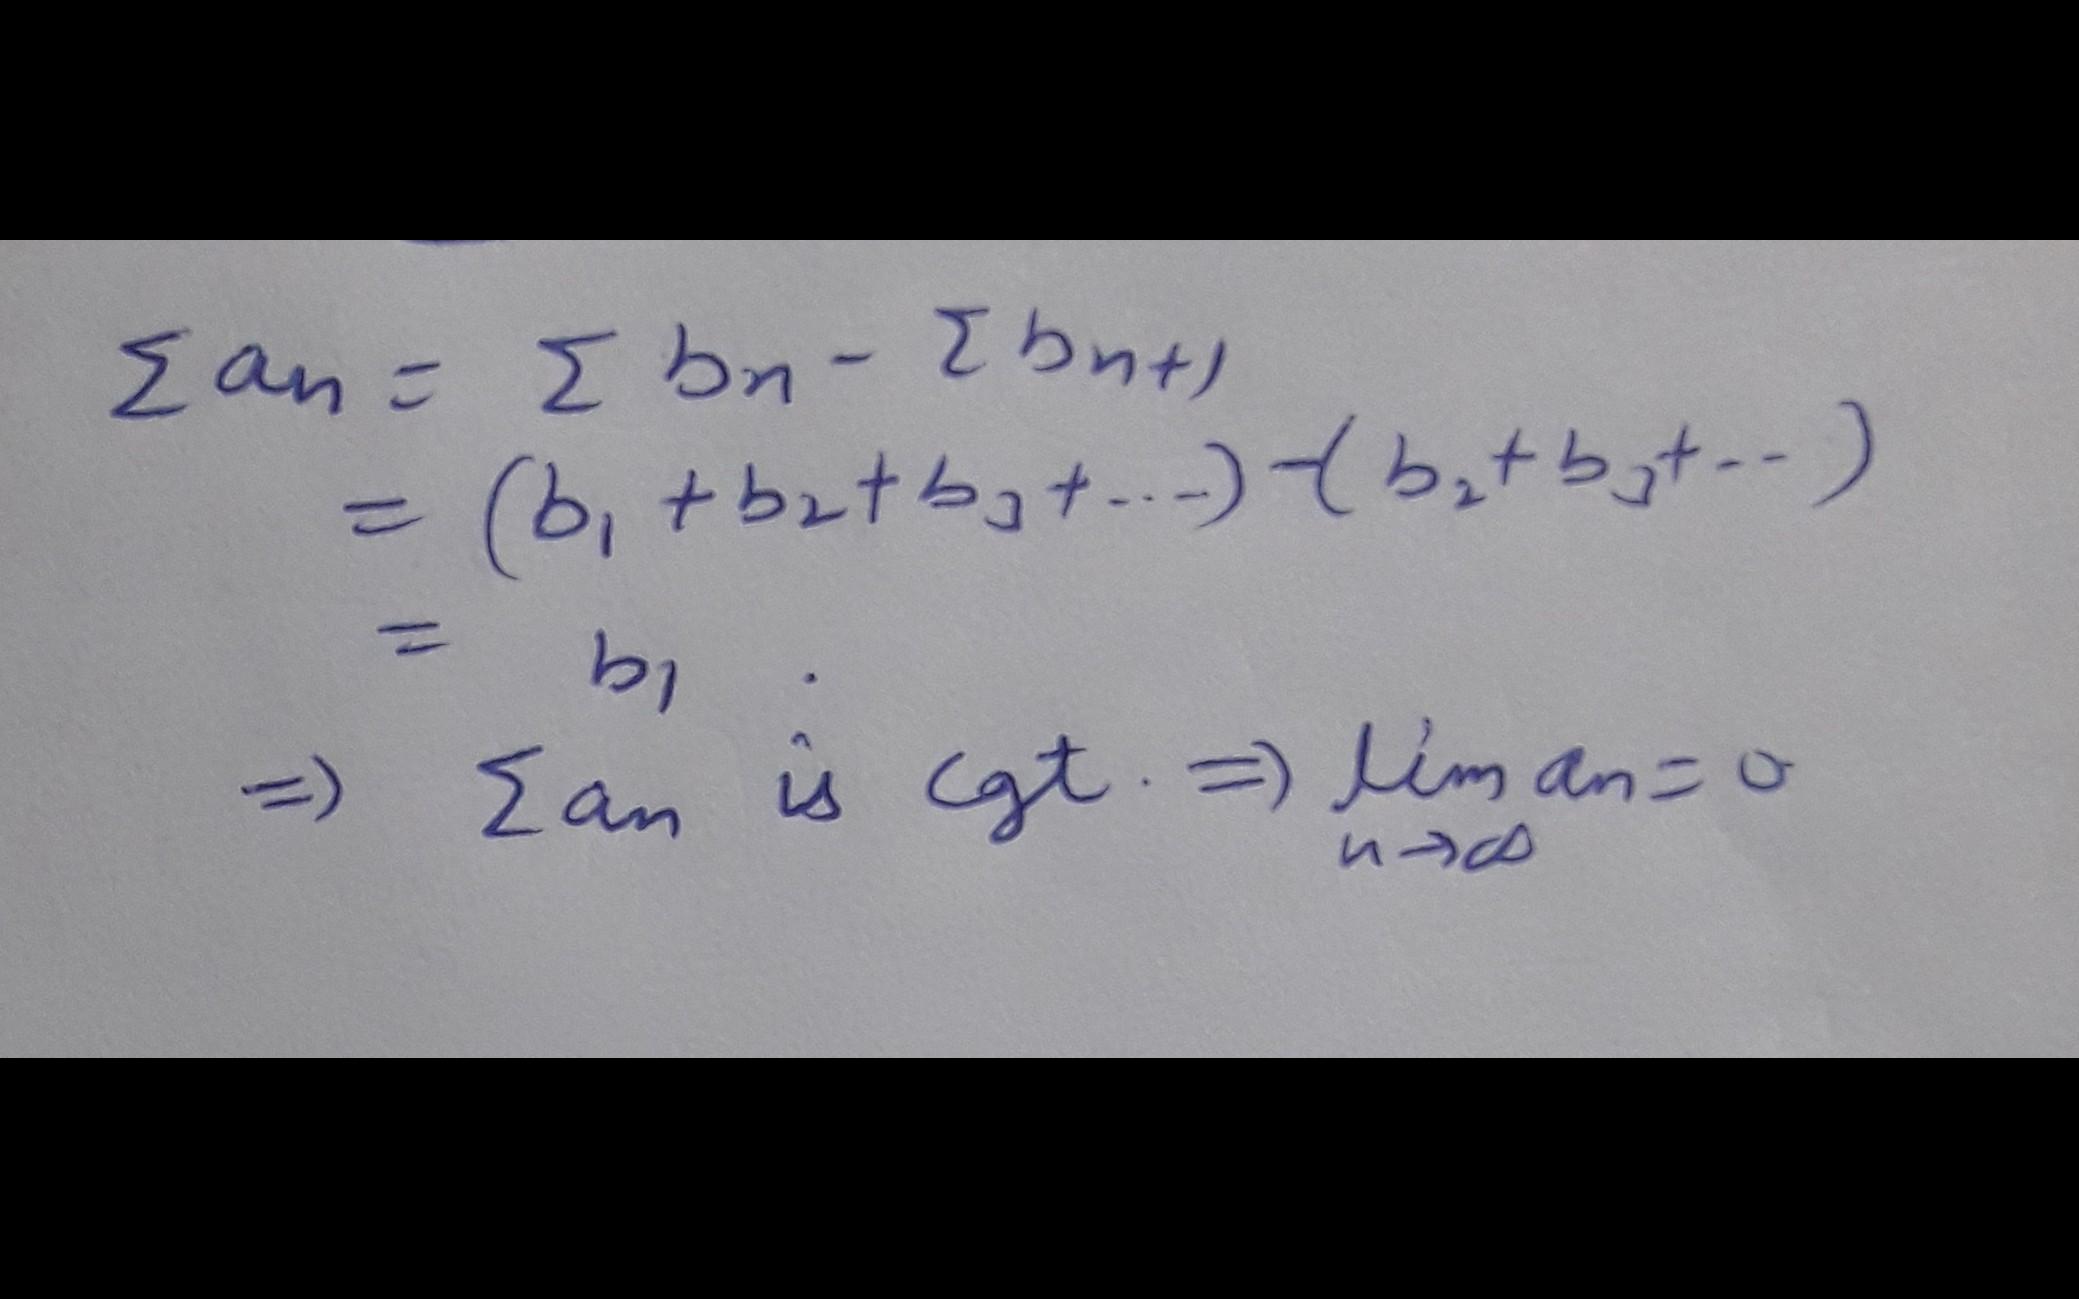 Σ an = Σ bn - Σ bn+1
= (b1 + b2 + b3 + ....) - (b2 + b3 + ...)
= b1 .
=> Σ an is cgt. => lim an = 0
n→∞